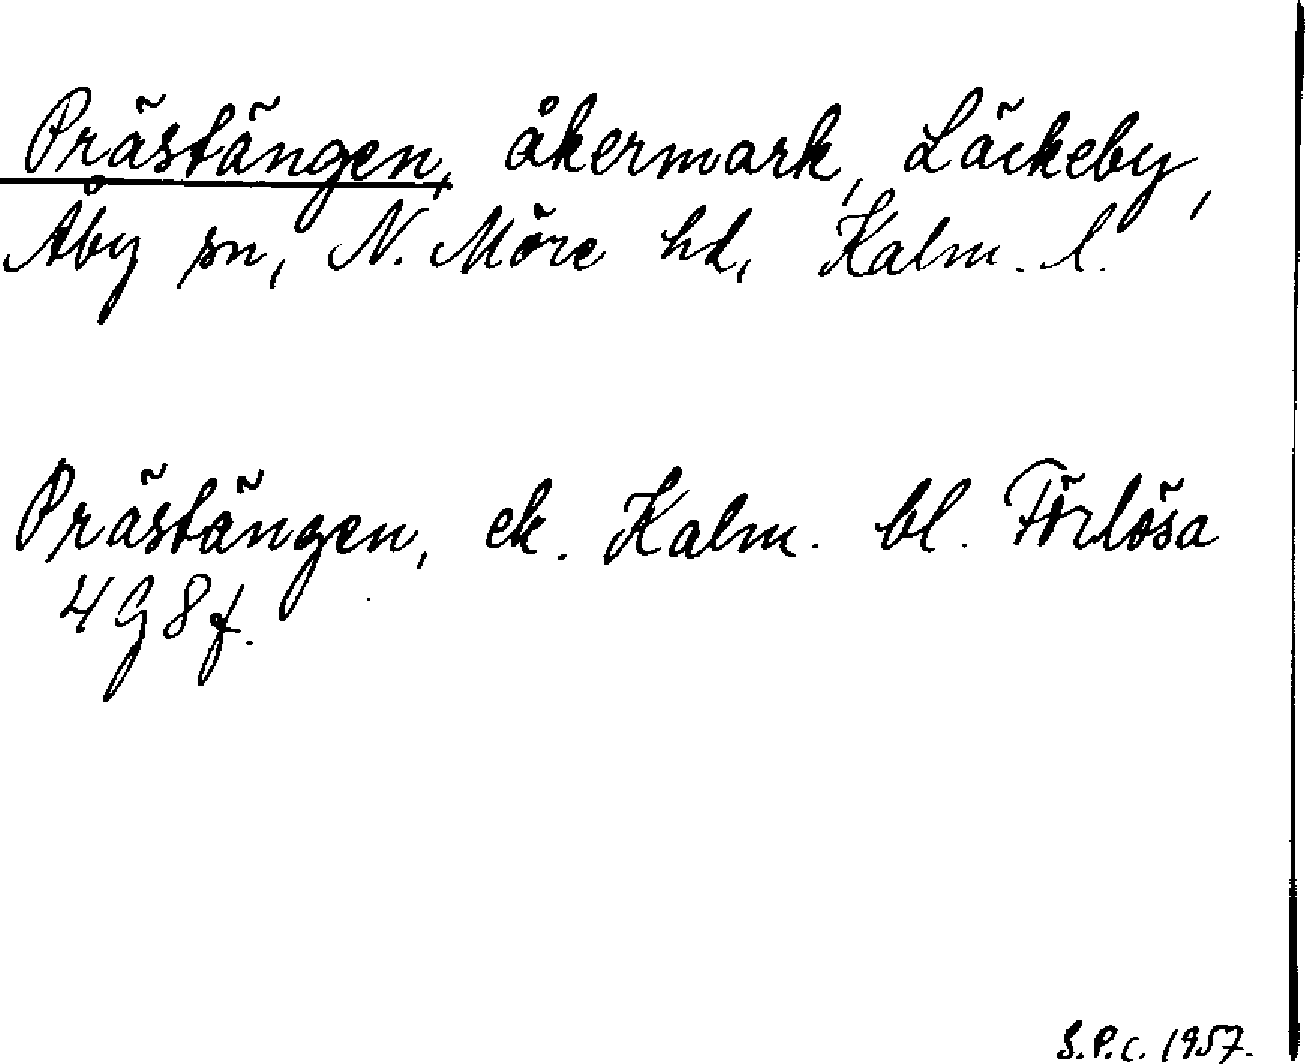 Prästängen, åkermark, Läckeby,
Åby sn, N. Möre hd, Kalm. l.
Prästängen, ek. Kalm. bl. Förlösa
4 G 8 f.
S.P.C. 1957.